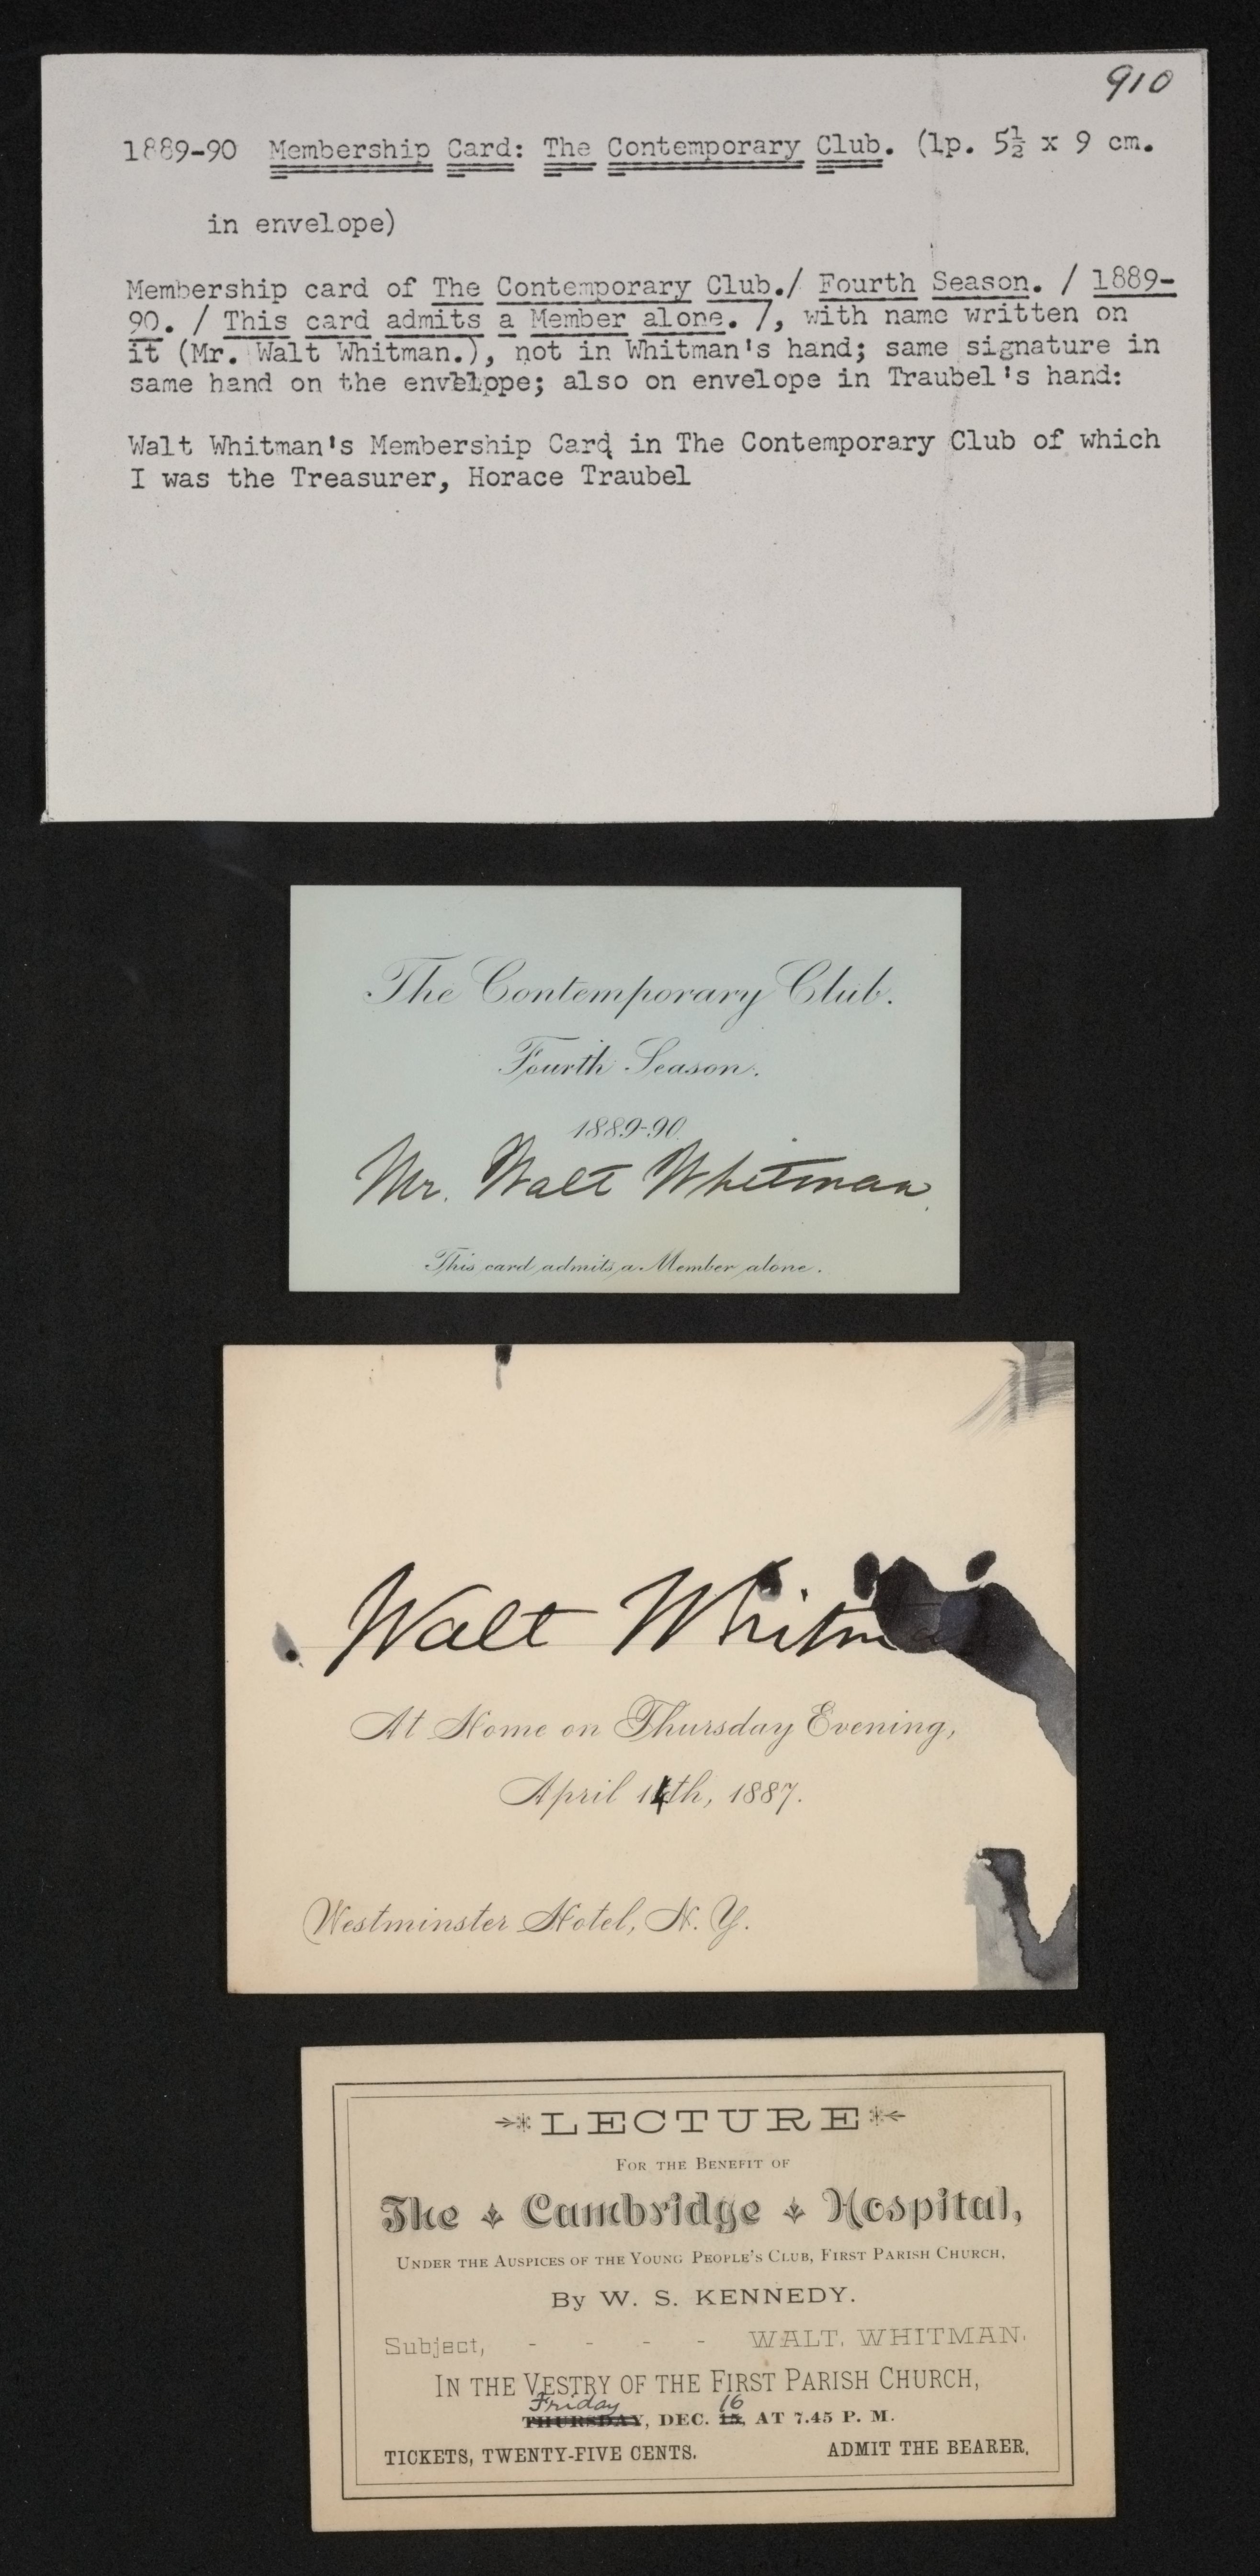 910
1889-90 Membership Card: The Contemporary Club. (1p. 5½ x 9 cm.
in envelope)
Membership card of The Contemporary Club./ Fourth Season. / 1889-
90. / This card admits a Member alone. /, with name written on
it (Mr. Walt Whitman.), not in Whitman's hand; same signature in
same hand on the envelope; also on envelope in Traubel's hand:
Walt Whitman's Membership Card in The Contemporary Club of which
I was the Treasurer, Horace Traubel
The Contemporary Club.
Fourth Season.
1889-90.
Mr. Walt Whitman.
This card admits a Member alone.
Walt Whitman
At Home on Thursday Evening,
April 14th, 1887.
Westminster Hotel, N. Y.
LECTURE
FOR THE BENEFIT OF
The Cambridge Hospital,
UNDER THE AUSPICES OF THE YOUNG PEOPLE'S CLUB, FIRST PARISH CHURCH,
By W. S. KENNEDY.
Subject, - - - - WALT. WHITMAN.
IN THE VESTRY OF THE FIRST PARISH CHURCH,
Friday 16
THURSDAY, DEC. 15, AT 7.45 P. M.
TICKETS, TWENTY-FIVE CENTS. ADMIT THE BEARER.